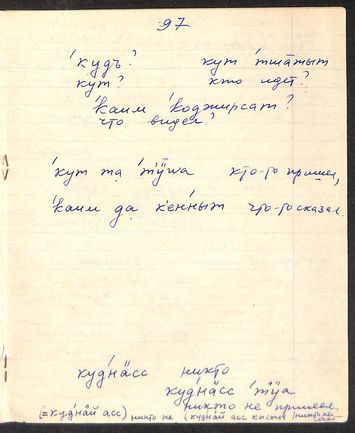 97
ˈкудъ? кут ˈтша̄тыт
кут? кто идет?
ˈкаим ˈкоджирсат?
что видел?
ˈкут та ˈтӱӱа кто-то пришел,
ˈкаим да кʼенˈныт что-то сказал.
кудˈнӓсс никто
кудˈнӓсс ˈтӱа
никто не пришел.
(=кудˈнӓй асс) никто не (кудˈнӓй асс кысын никто не